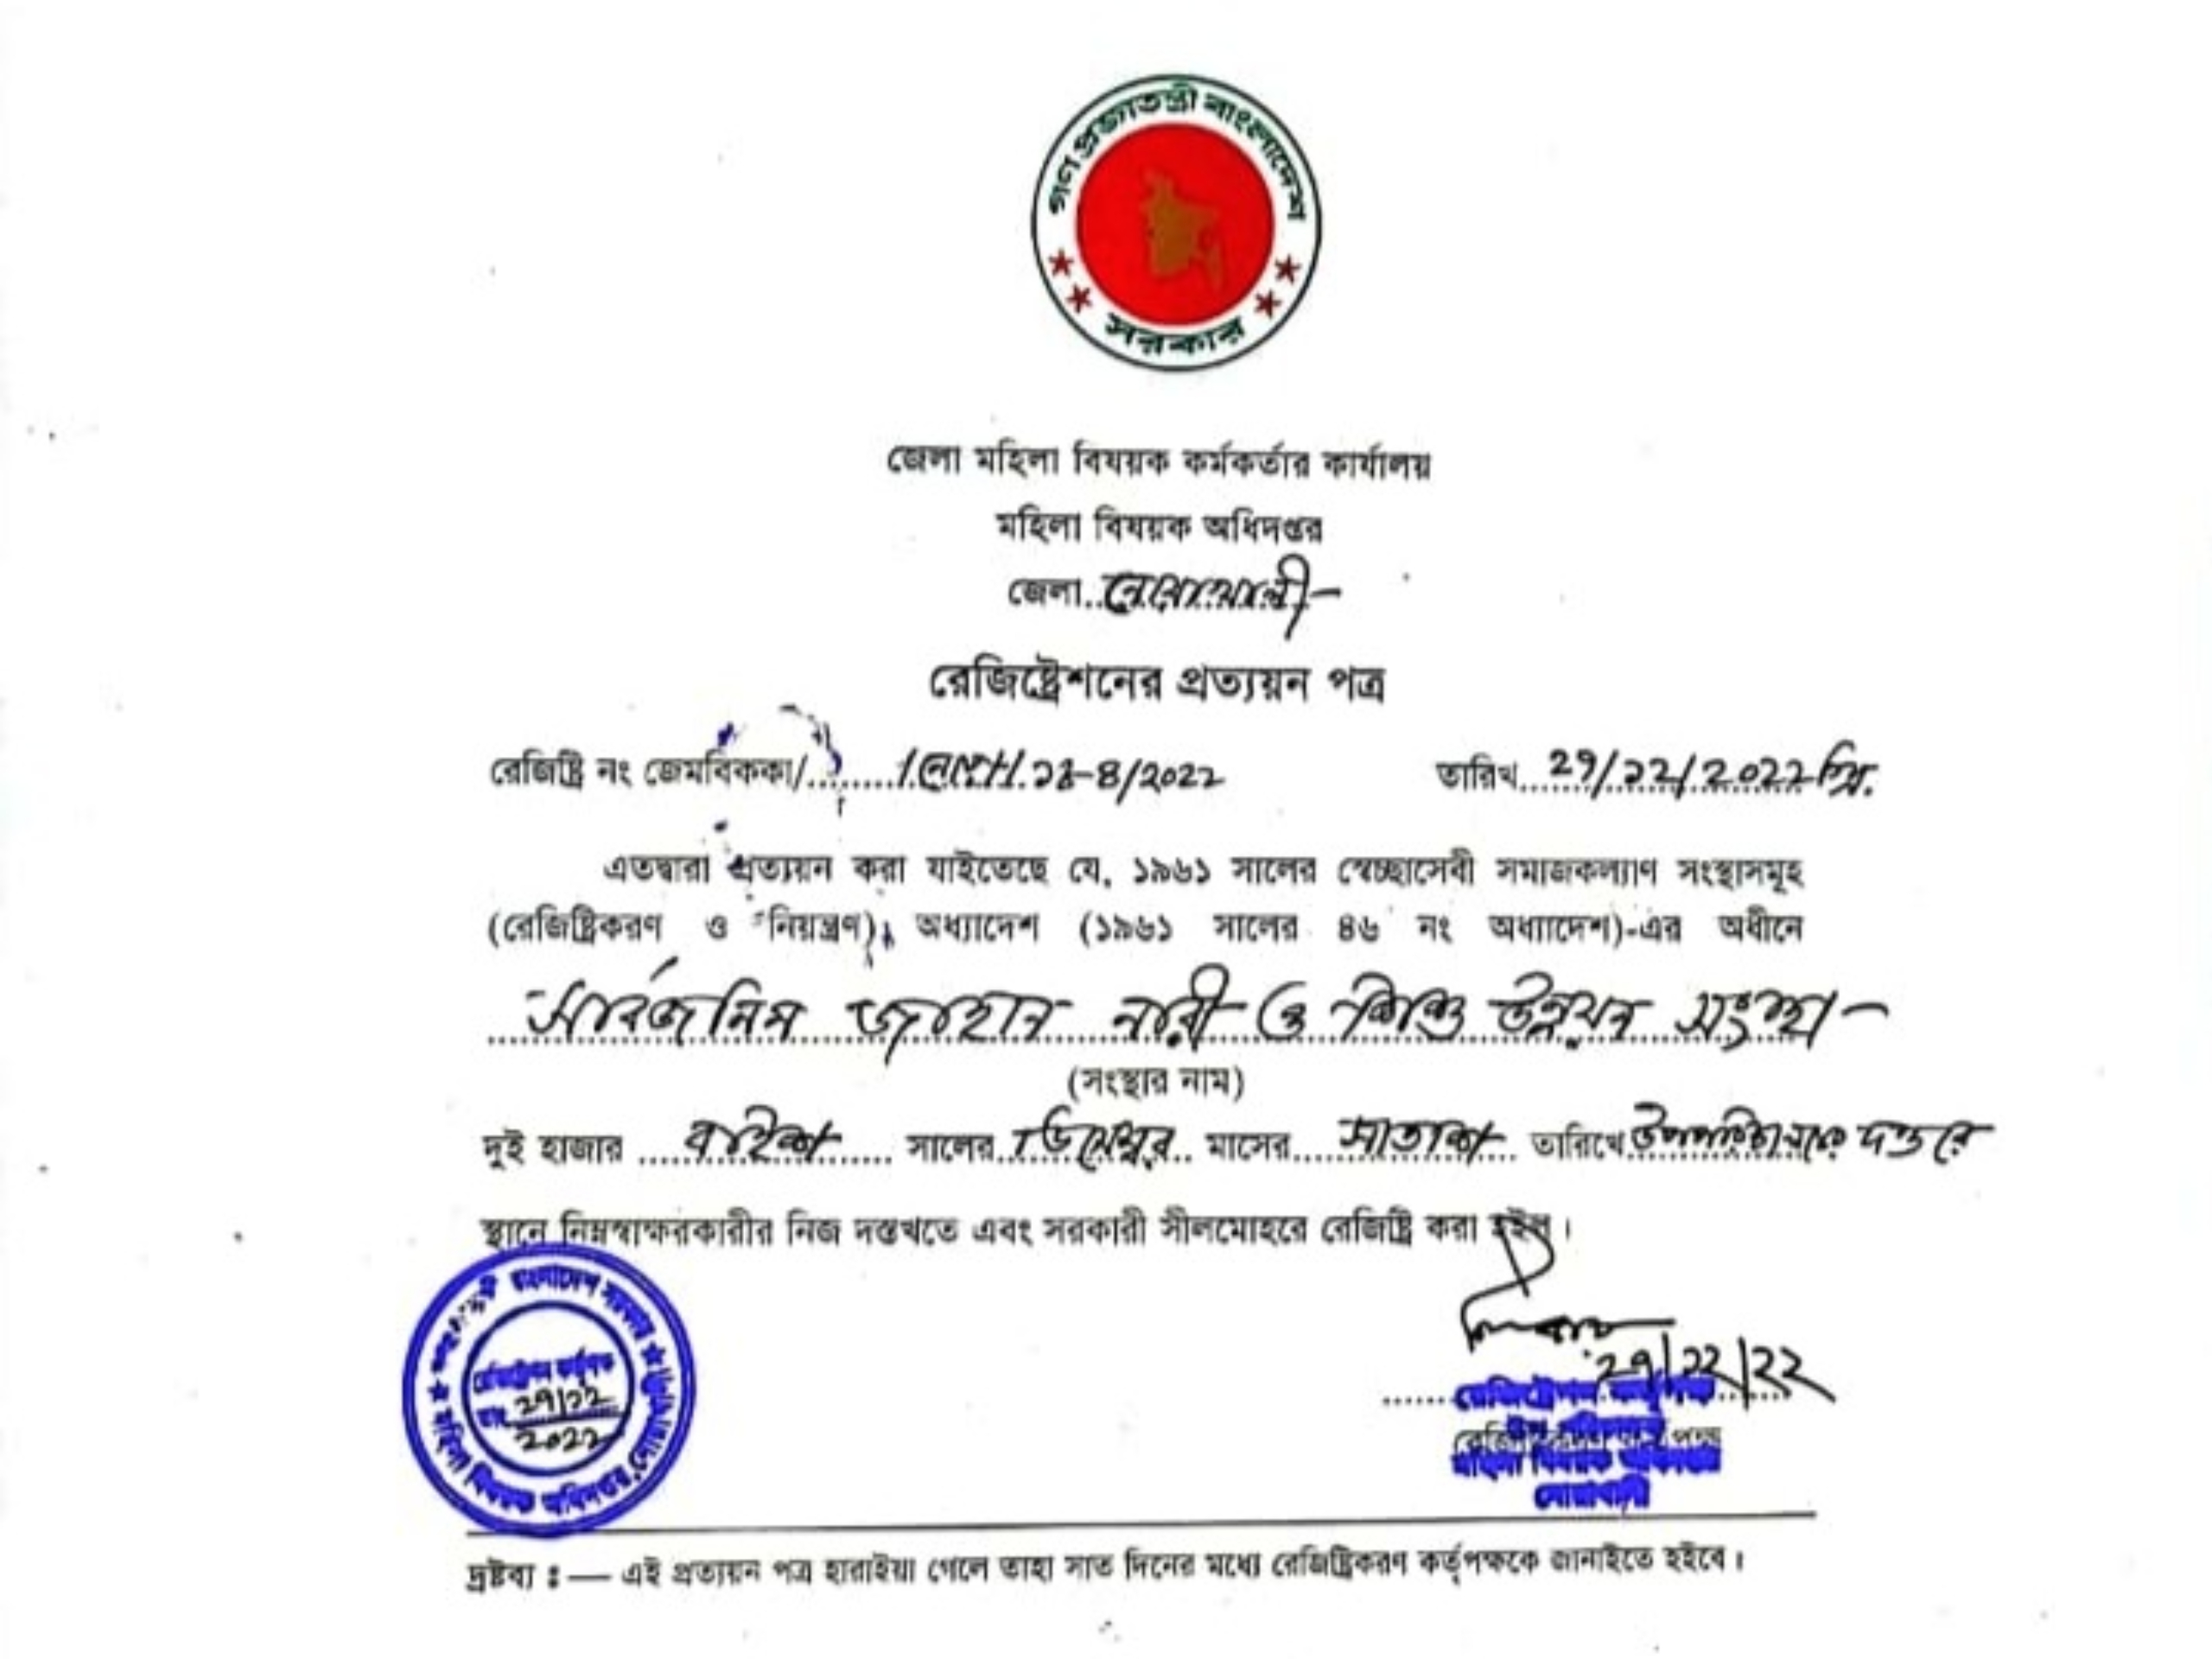 গণপ্রজাতন্ত্রী বাংলাদেশ
সরকার
জেলা মহিলা বিষয়ক কর্মকর্তার কার্যালয়
মহিলা বিষয়ক অধিদপ্তর
জেলা..নোয়াখালী-
রেজিষ্ট্রেশনের প্রত্যয়ন পত্র
রেজিষ্ট্রি নং জেমবিককা/......... তারিখ...২৭/১২/২০২২ খ্রি.
এতদ্বারা প্রত্যয়ন করা যাইতেছে যে, ১৯৬১ সালের স্বেচ্ছাসেবী সমাজকল্যাণ সংস্থাসমূহ
(রেজিষ্ট্রিকরণ ও নিয়ন্ত্রণ), অধ্যাদেশ (১৯৬১ সালের ৪৬ নং অধ্যাদেশ)-এর অধীনে
জাহান নারী ও শিশু উন্নয়ন সংস্থা-
(সংস্থার নাম)
দুই হাজার বাইশ সালের ডিসেম্বর মাসের সাতাশ তারিখে উপপরিচালকের দপ্তরে
স্থানে নিম্নস্বাক্ষরকারীর নিজ দস্তখতে এবং সরকারী সীলমোহরে রেজিষ্ট্রি করা হইল।
বাংলাদেশ সরকার
রেজিষ্ট্রেশন কর্তৃপক্ষ
২৭/১২
২০২২
মহিলা বিষয়ক অধিদপ্তর, নোয়াখালী
২৭/১২/২২
রেজিষ্ট্রেশন কর্তৃপক্ষ
মহিলা বিষয়ক অধিদপ্তর
নোয়াখালী
দ্রষ্টব্য ঃ— এই প্রত্যয়ন পত্র হারাইয়া গেলে তাহা সাত দিনের মধ্যে রেজিষ্ট্রিকরণ কর্তৃপক্ষকে জানাইতে হইবে।